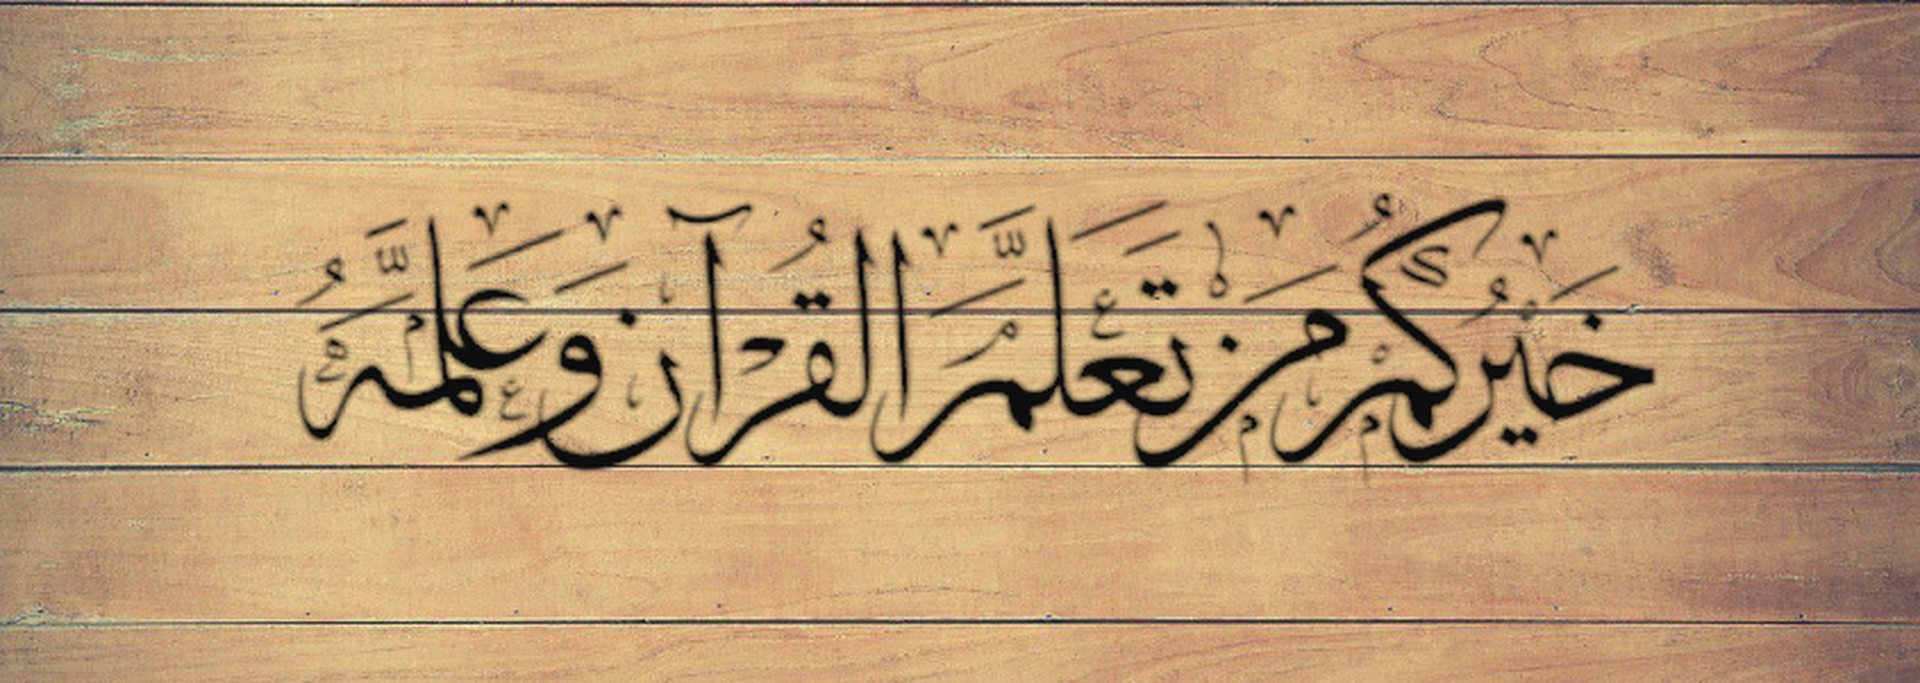 خَيْرُكُمْ مَنْ تَعَلَّمَ الْقُرْآنَ وَعَلَّمَهُ